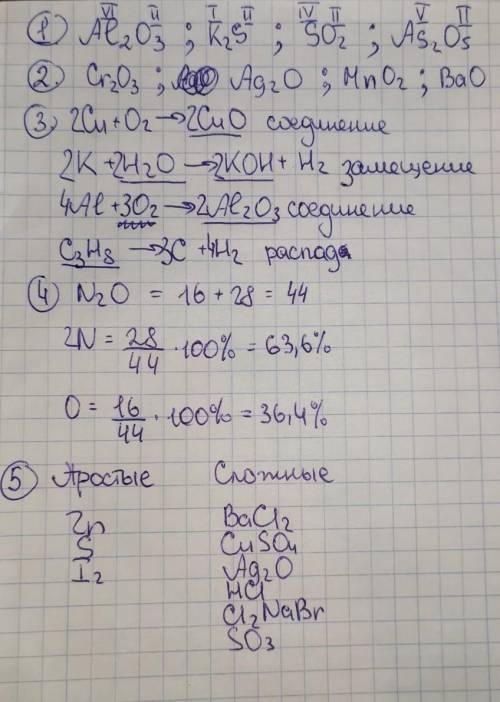 ① Al₂O₃ (VI II) ; K₂S (I II) ; SO₂ (IV II) ; As₂O₅ (V II)
② Cr₂O₃ ; Ag₂O ; MnO₂ ; BaO
③ 2Cu + O₂ → 2CuO соединение
2K + 2H₂O → 2KOH + H₂ замещение
4Al + 3O₂ → 2Al₂O₃ соединение
C₃H₈ → 3C + 4H₂ распад
④ N₂O = 16 + 28 = 44
2N = 28/44 · 100% = 63,6%
O = 16/44 · 100% = 36,4%
⑤ Простые Сложные
Zn BaCl₂
S CuSO₄
I₂ Ag₂O
HCl
Cl₂NaBr
SO₃